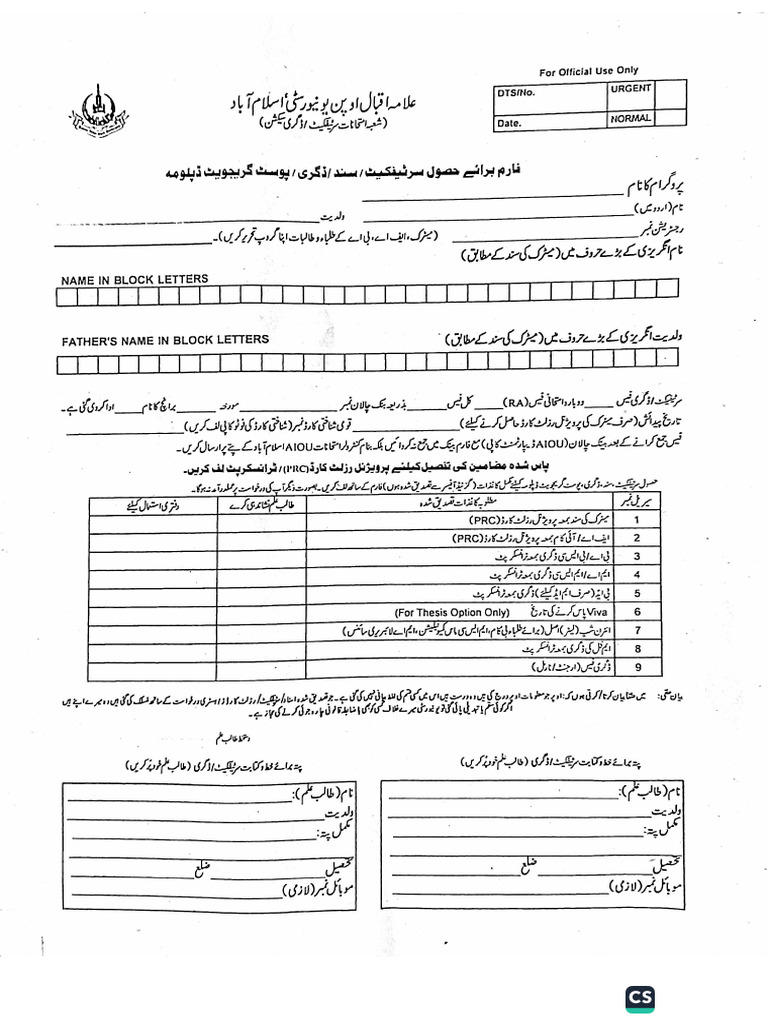 For Official Use Only
DTS/No.
URGENT
Date.
NORMAL
علامہ اقبال اوپن یونیورسٹی، اسلام آباد
(شعبہ امتحانات سرٹیفکیٹ/ڈگری سیکشن)
فارم برائے حصول سرٹیفکیٹ/سند/ڈگری/پوسٹ گریجویٹ ڈپلومہ
پروگرام کا نام
نام (اردو میں) ولدیت
رجسٹریشن نمبر (میٹرک، ایف اے، بی اے کے طلباء و طالبات اپنا گروپ تحریر کریں)۔
نام انگریزی کے بڑے حروف میں (میٹرک کی سند کے مطابق)
NAME IN BLOCK LETTERS
ولدیت انگریزی کے بڑے حروف میں (میٹرک کی سند کے مطابق)
FATHER'S NAME IN BLOCK LETTERS
سرٹیفکیٹ/ڈگری فیس دوبارہ امتحانی فیس (RA) کل فیس بذریعہ بنک چالان نمبر مورخہ برانچ کا نام ادا کر دی گئی ہے۔
تاریخ پیدائش (صرف میٹرک کی پرویژنل رزلٹ کارڈ حاصل کرنے کیلئے) قومی شناختی کارڈ نمبر (شناختی کارڈ کی فوٹو کاپی لف کریں)
فیس جمع کرانے کے بعد بینک چالان (AIOU ڈیپارٹمنٹ کاپی) مع فارم بینک میں جمع نہ کروائیں بلکہ بنام کنٹرولر امتحانات AIOU اسلام آباد کے پتے پر ارسال کریں۔
پاس شدہ مضامین کی تفصیل کیلئے پرویژنل رزلٹ کارڈ (PRC)/ٹرانسکرپٹ لف کریں۔
حصول سرٹیفکیٹ، سند، ڈگری، پوسٹ گریجویٹ ڈپلومہ کیلئے مکمل کاغذات (گزیٹڈ آفیسر سے تصدیق شدہ ہوں) فارم کے ساتھ لف کریں۔ بصورت دیگر آپ کی درخواست پر عملدرآمد نہ ہوگا۔
سیریل نمبر مطلوبہ کاغذات تصدیق شدہ طالب علم نشاندہی کرے دفتری استعمال کیلئے
1 میٹرک کی سند بمعہ پرویژنل رزلٹ کارڈ (PRC)
2 ایف اے/آئی کام بمعہ پرویژنل رزلٹ کارڈ (PRC)
3 بی اے/بی ایس سی ڈگری بمعہ ٹرانسکرپٹ
4 ایم اے/ایم ایس سی ڈگری بمعہ ٹرانسکرپٹ
5 بی ایڈ (صرف ایم ایڈ کیلئے) ڈگری بمعہ ٹرانسکرپٹ
6 Viva پاس کرنے کی تاریخ (For Thesis Option Only)
7 انٹرن شپ (لیٹر) اصل (برائے طلباء بی کام، ایم ایس سی ماس کمیونیکیشن، ایم اے لائبریری سائنس)
8 ایم فل کی ڈگری بمعہ ٹرانسکرپٹ
9 ڈگری فیس (ارجنٹ/نارمل)
بیان حلفی: میں حلفا بیان کرتا/کرتی ہوں کہ: اوپر جو معلومات اوپر درج کی ہیں وہ درست ہیں اس میں کسی قسم کی غلط بیانی نہیں کی گئی ہے۔ جو تصدیق شدہ اسناد/سرٹیفکیٹ/رزلٹ کارڈز/ڈگری درخواست کے ساتھ منسلک کی گئی ہیں وہ میرے اپنے ہیں
اگر کوئی سقم یا تبدیلی پائی گئی تو یونیورسٹی میرے خلاف کسی کو بھی باضابطہ قانونی چارہ جوئی کرنے کی مجاز ہے۔
دستخط طالب علم
پتہ برائے خط و کتابت سرٹیفکیٹ/ڈگری (طالب علم خود پُر کریں)
نام (طالب علم):
ولدیت
مکمل پتہ:
تحصیل ضلع
موبائل نمبر (لازمی)
پتہ برائے خط و کتابت سرٹیفکیٹ/ڈگری (طالب علم خود پُر کریں)
نام (طالب علم):
ولدیت
مکمل پتہ:
تحصیل ضلع
موبائل نمبر (لازمی)
CS